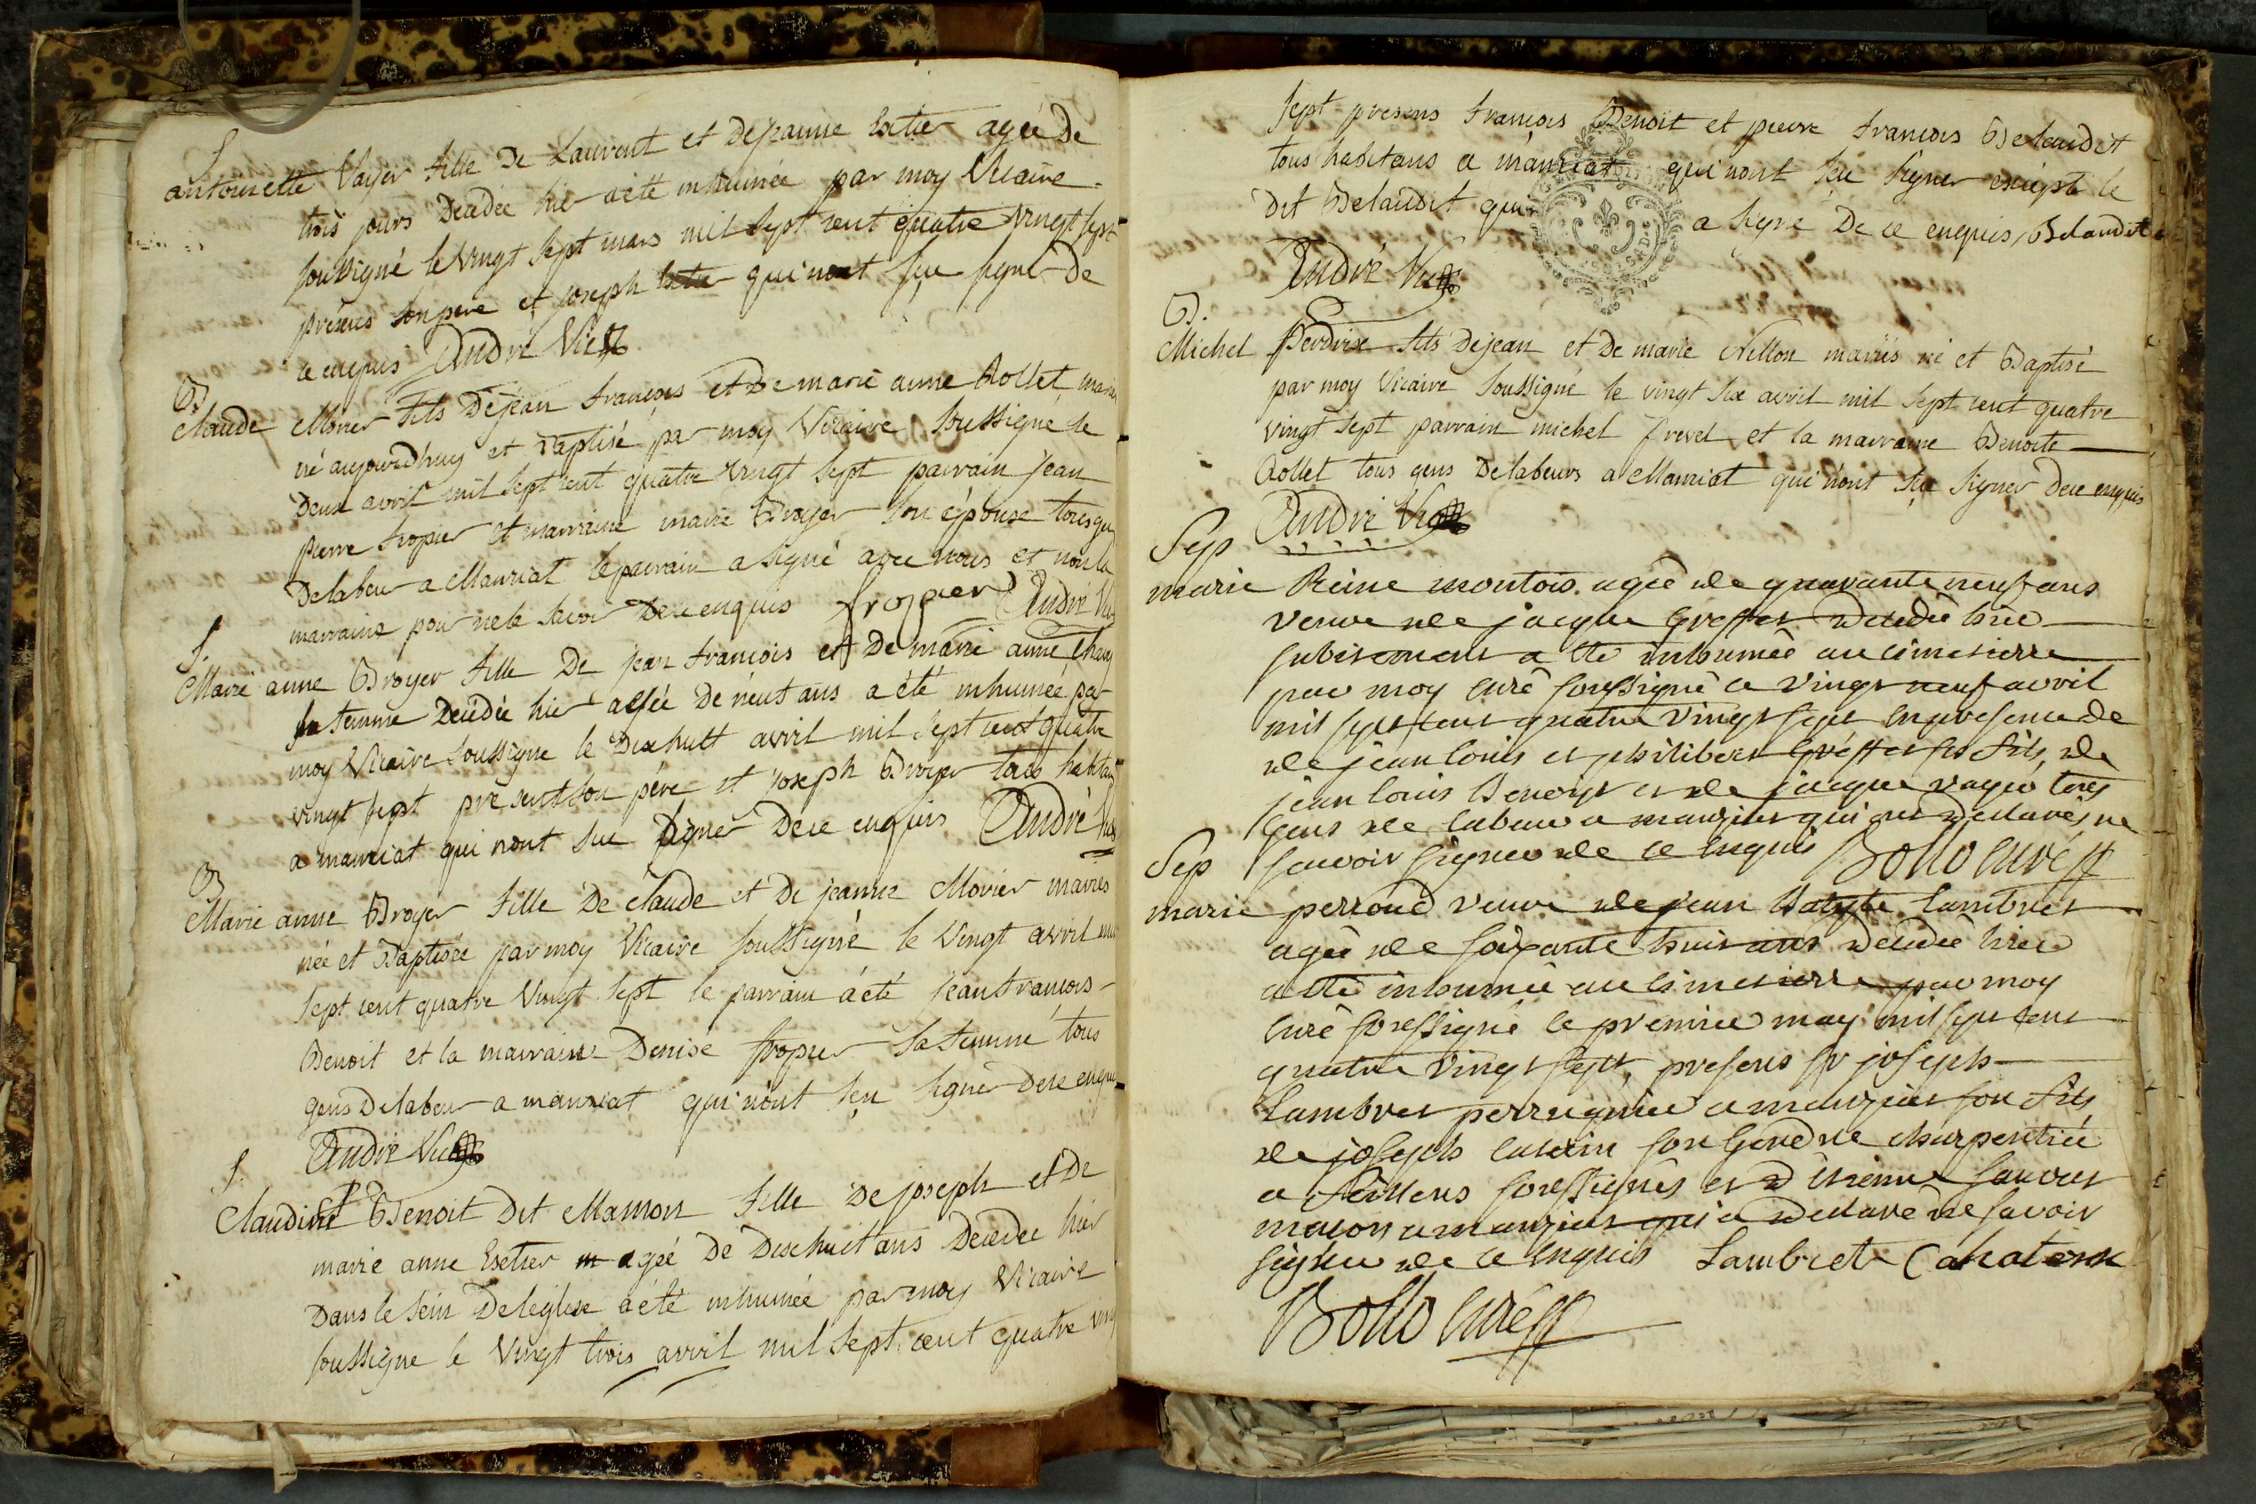 S.
antoinette Vayer fille De Laurent et Dejeanne Esetier agée De
trois jours Decédée hier aété inhumée par moy Vicaire
soussigné le vingt sept mars mil sept cent quatre vingt sept
présens son pere et joseph qui nont sçu signé De
ce enquis André Vic
B.
Claude Morier fils Dejean françois et De marie anne Rollet mariés
né aujourd'huy et Baptisé par moy Vicaire soussigné le
Deux avril mil sept cent quatre vingt sept parrain jean
pierre fropier et marraine marie Broyer son épouse tous gens
Delabeur a Manziat le parrain a signé avec nous et non la
marraine pour ne le savoir De ce enquis fropier André Vic
S.
Marie anne Broyer fille De jean françois et De marie anne
sa femme Decédée hier agée De neuf ans a été inhumée par
moy Vicaire soussigne le Dix huit avril mil sept cent quatre
vingt sept présent son pére et joseph Broyer tous habitans
a manziat qui nont sue signer De ce enquis André
B
Marie anne Broyer fille De claude et De jeanne Morier mariés
née et Baptisée par moy Vicaire soussigné le Vingt avril mil
sept cent quatre Vingt sept le parrain a été jean françois
Benoit et la marraine Denise fropier Sa femme tous
gens Delabeur a manziat qui n'ont sçu signer De ce enquis
André Vic
S.
Claudine Benoit Dit Mamon fille De joseph et De
marie anne Esetier agée De Dix huit ans Decedée hier
Dans le sein De leglise a été inhumée par moy Vicaire
soussigne le Vingt trois avril mil sept cent quatre vingt
sept présens françois Benoit et pierre françois Belaudit
tous habitans a manziat qui nont seu signer excépté le
Dit Belaudit qui a signé De ce enquis Belaudit
André Vic
B.
Michel Perdrix fils Dejean et De marie Nillon mariés né et Baptisé
par moy Vicaire soussigné le vingt six avril mil sept cent quatre
vingt sept parrain michel frevel et la marraine Benoite
Rollet tous gens Delabeurs a Manziat qui n'ont sçu signer De ce enquis
André Vic
Sep
marie Reine montois agée de quarante neuf ans
veuve de jacque Greffet decedée hier
subitement a été inhumée au cimetierre
par moy curé soussigné ce vingt neuf avril
mil sept cent quatre vingt sept en presence de
de jean louis et philibert Gréffet ses fils, de
jean louis Benoist et de jacque vayer tous
gens de labeur a manziat qui ont declarés ne
savoir signer de ce enquis Bollo curé
Sep
marie perroud veuve de jean Batiste Lambret
agée de soixante huit ans decedée hier
a été inhumée au cimetierre par moy
curé soussigné le premier may mil sept cent
quatre vingt sept, presens sr joseph
Lambret perruquier a manziat son fils
de joseph son gendre charpentier
a soussignés et d'etienne
macon a manziat qui a declaré ne savoir
signer de ce enquis Lambret
Bollo curé